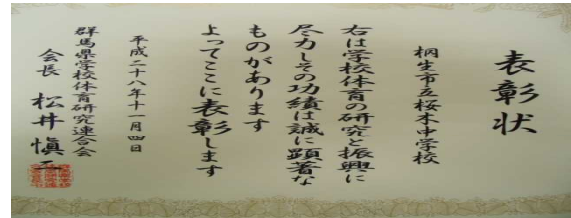 表彰状
桐生市立桜木中学校
右は学校体育の研究と振興に
尽力しその功績は誠に顕著な
ものがあります
よってここに表彰します
平成二十八年十一月四日
群馬県学校体育研究連合会
会長 松井慎